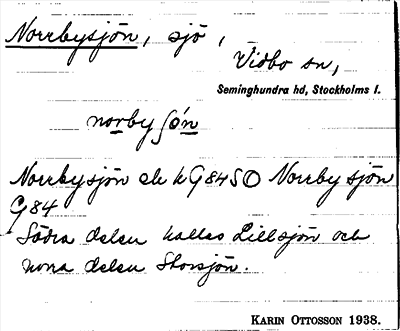 Norrbysjön, sjö,
Vidbo sn,
Seminghundra hd, Stockholms l.
norbyʃö́n
Norrbysjön ek KG84SO Norrbysjön
G84
Södra delen kallas Lillsjön och
norra delen Storsjön.
KARIN OTTOSSON 1938.